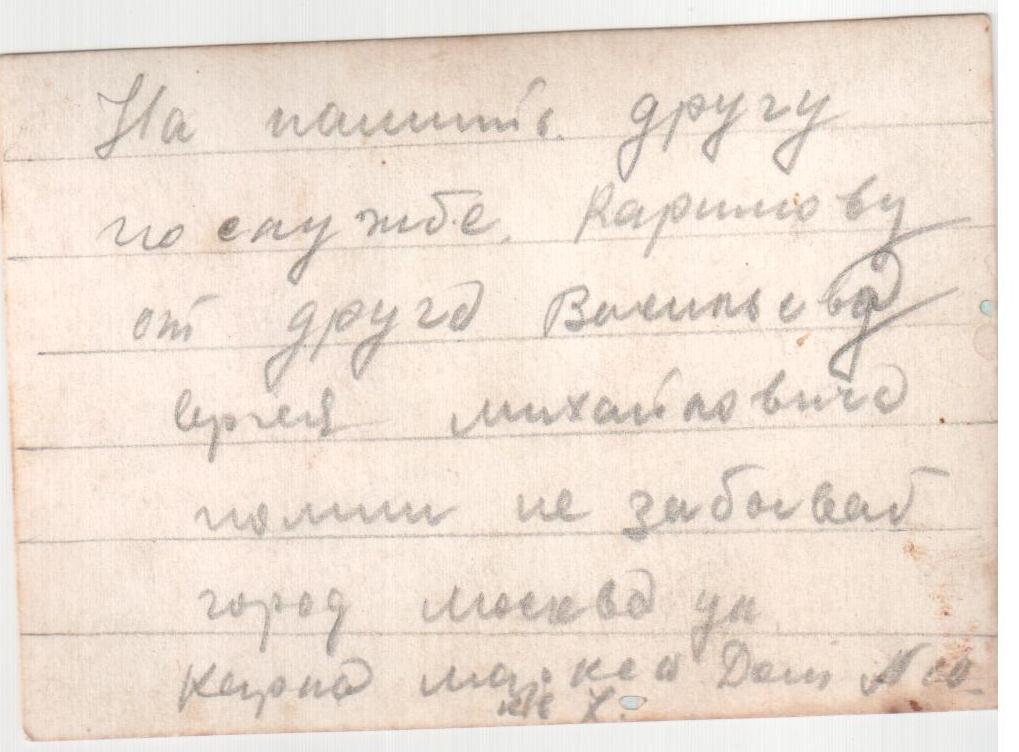 На память другу
по службе. Каримову
от друга Васильева
Сергея Михайловича
помни не забывай
город Москва ул
Карла Маркса Дом №